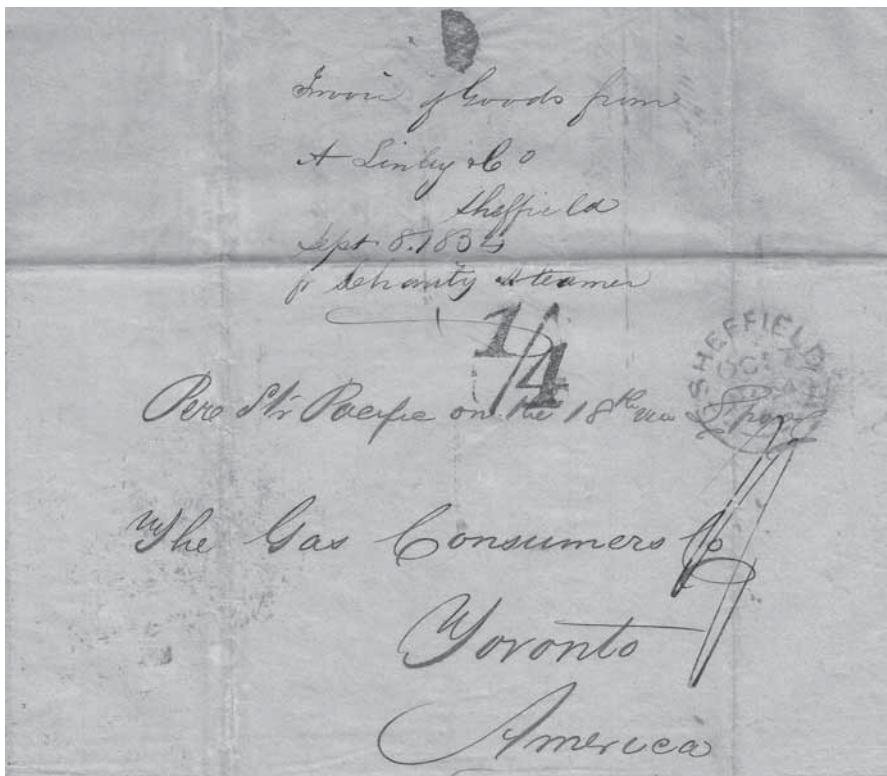 Invoice of Goods from
A Linley & Co
Sheffield
Sept 8. 1854
pr Charity Steamer
1/4
SHEFFIELD
OC
Pere Str Pacific on the 18th
The Gas Consumers Co
Toronto
America